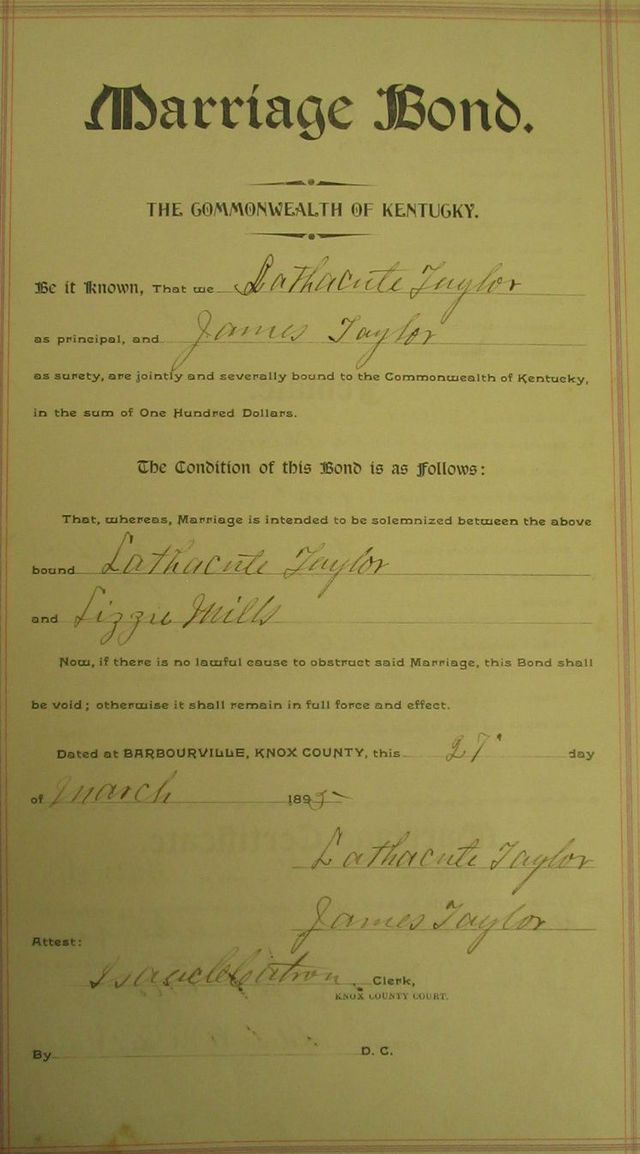 Marriage Bond.
THE COMMONWEALTH OF KENTUCKY.
Be it Known, That we Lathacute Taylor
as principal, and James Taylor
as surety, are jointly and severally bound to the Commonwealth of Kentucky,
in the sum of One Hundred Dollars.
The Condition of this Bond is as Follows:
That, whereas, Marriage is intended to be solemnized between the above
bound Lathacute Taylor
and Lizzie Mills
Now, if there is no lawful cause to obstruct said Marriage, this Bond shall
be void; otherwise it shall remain in full force and effect.
Dated at BARBOURVILLE, KNOX COUNTY, this 27 day
of March 1895
Lathacute Taylor
James Taylor
Attest:
Clerk,
KNOX COUNTY COURT.
By D. C.